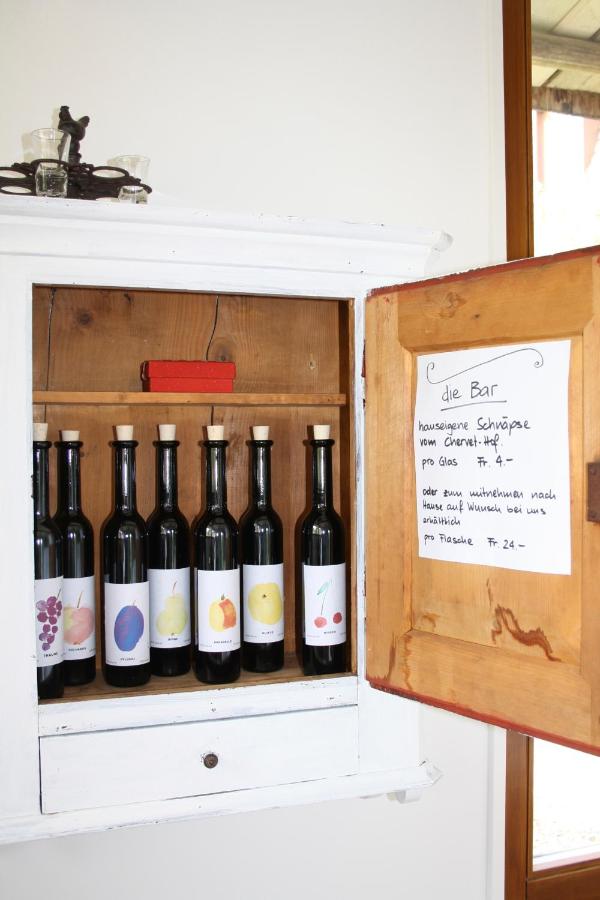 die Bar
hauseigene Schnäpse
vom Chervet-Hof.
pro Glas Fr. 4.-
oder zum mitnehmen nach
Hause auf Wunsch bei uns
erhältlich
pro Flasche Fr. 24.-
TRAUBE